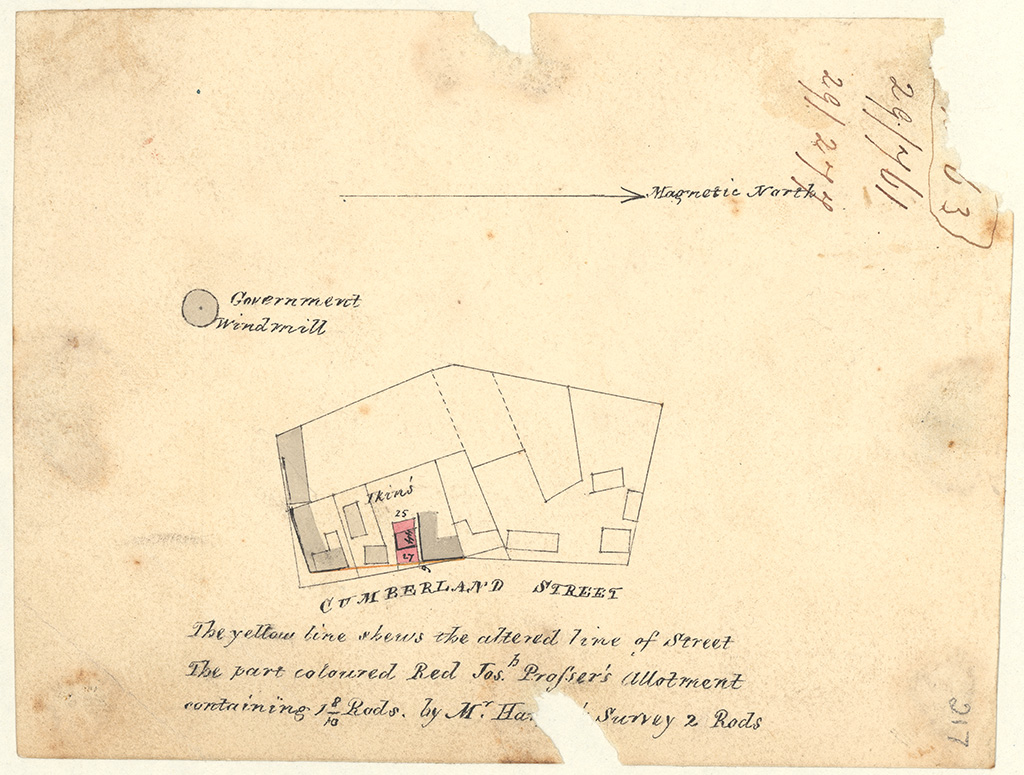 63
29/761
29/277
Magnetic North
Government
Windmill
Ikin's
25
27
9
CUMBERLAND STREET
The yellow line shews the altered line of Street
The part coloured Red Jos.h Proſser's Allotment
containing 1 8/10 Rods. by Mr Survey 2 Rods
217